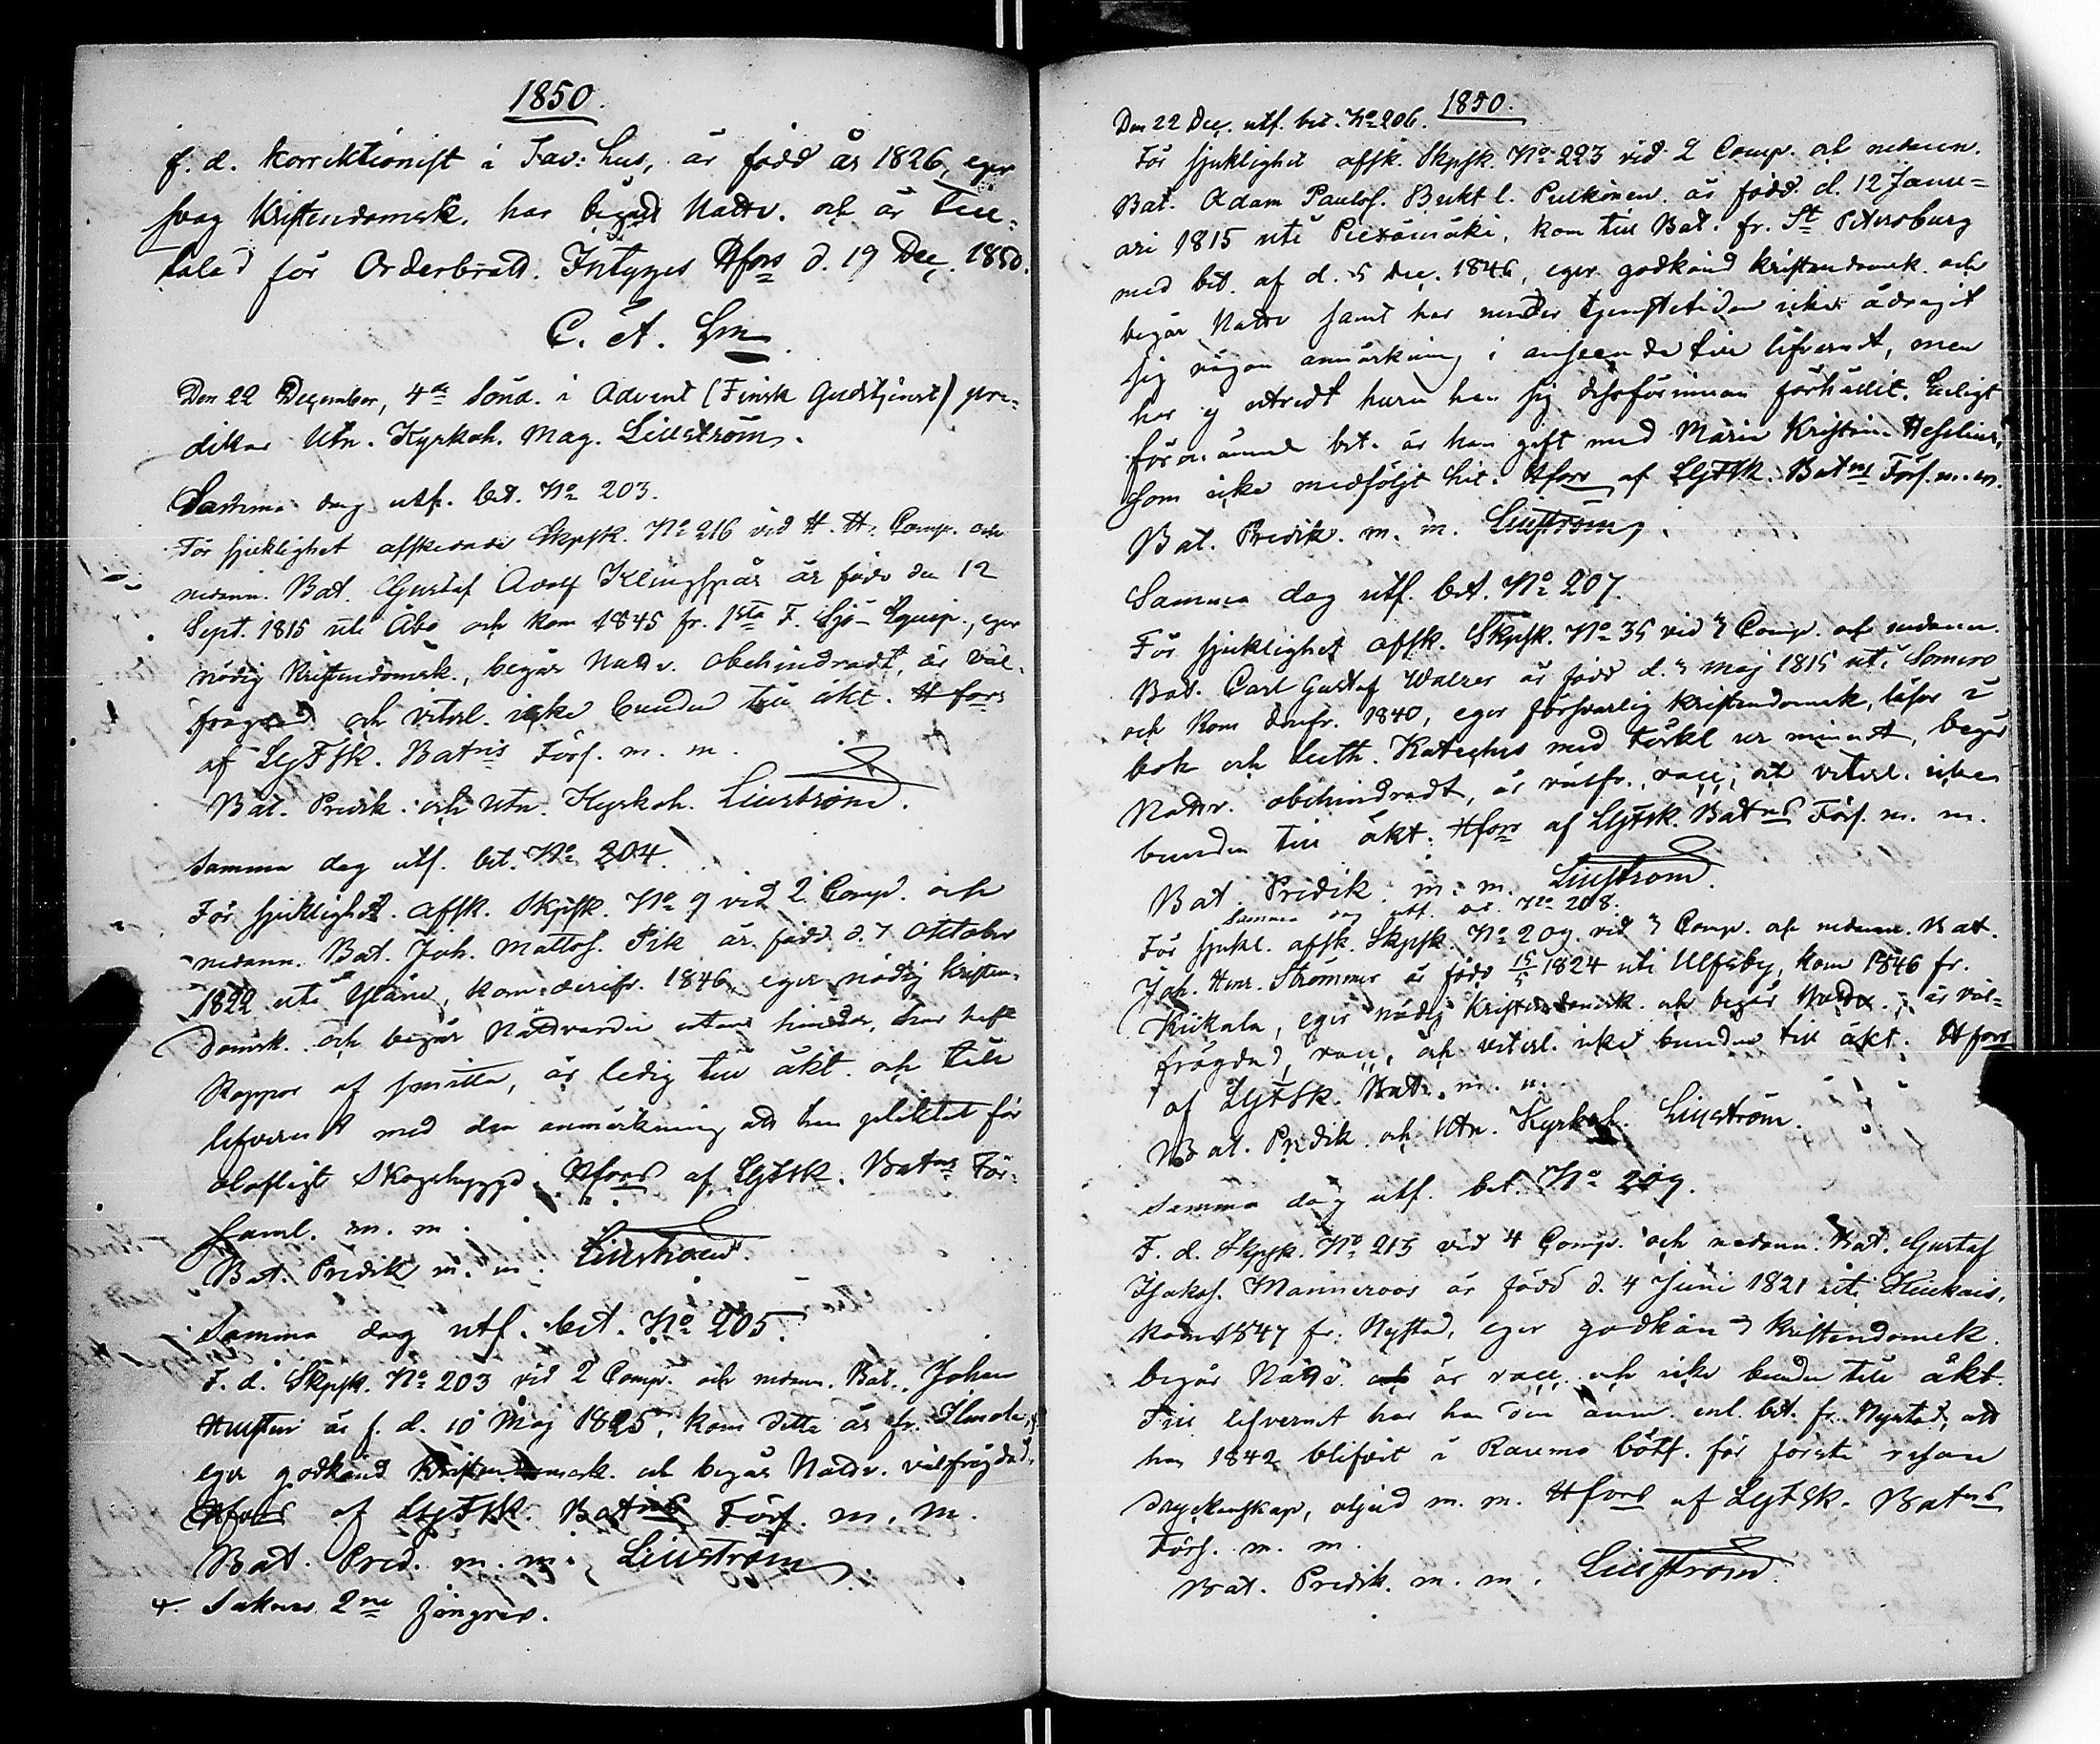 1850.
f. d. Korrektionist i Tav: hus, är född år 1826, eger
svag Kristendomsk. har begått Nattv. och är till-
talad för Orderbrott. Intygas Hfors d. 19 Dec. 1850.
C. A. Lm
Den 22 December, 4de Sönd. i Advent (Finsk Gudstjenst) pre-
dikar Utn. Kyrkoh. Mag. Lillström.
Samma dag utf. bet. No 203.
För sjuklighet afskedade Skpsk. No 216 vid H. H. Comp. och
nedann. Bat. Gustaf Adolf Klingspår är född den 12
Sept. 1815 uti Åbo och kom 1845 fr. 1sta F. Sjö-Equip., eger
nödig Kristendomsk., begår Nattv. obehindradt, är väl-
frägdad och veterl. icke bunden till äkt. Hfors
af LgFSk. Batns Förs. m. m.
Bat. Predik. och Utn. Kyrkoh. Lillström.
Samma dag utf. bet. No 204.
För sjuklighet afsk. Skpsk. No 9 vid 2 Comp. och
nedann. Bat. Joh. Mattss. Pik är född d. 7 Oktober
1822 uti Yläne, kom derifr. 1846, eger nödig kristen-
domsk. och begår Nattvarden utan hinder, har haft
Koppor af smitta, är ledig till äkt. och till
lefvernet med den anmärkning att han pliktat för
olofligt skogshygge. Hfors af LgFSk. Batns För-
saml. m. m.
Bat. Predik m. m. Lillström.
Samma dag utf. bet. No 205.
F. d. Skpsk. No 203 vid 2 Comp. och nedann. Bat. Johan
är f. d. 10 Maj 1825, kom detta år fr. Ilmola,
eger godkänd Kristendomsk. och begår Nattv. välfrägdad.
Hfors af LgFSk. Batns Förs. m. m.
Bat. Pred. m. m. Lillström
Saknar 2ne
1850.
Den 22 Dec. utf. bet. No 206.
För sjuklighet afsk. Skpsk. No 223 vid 2 Comp. af nedann.
Bat. Adam Paulss. Bukt l. Pulkinen är född d. 12 Janu-
ari 1815 uti Piexämäki, kom till Bat. fr. St Petersburg
med bet. af d. 5 Dec. 1846, eger godkänd kristendomsk. och
begår Nattv samt har under tjenstetiden icke ådragit
sig någon anmärkning i anseende till lefvernet, men
har ej utredt huru han sig dessförinnan förhållit. Enligt
förenämnd bet. är han gift med Maria Kristina Hesselius,
som icke medföljt hit. Hfors af LgFSk. Batns Förs. m. m.
Bat. Predik. m. m. Lillström.
Samma dag utf. bet. No 207.
För sjuklighet afsk. Skpsk. No 35 vid 3 Comp. af nedann.
Bat. Carl Gustaf Walzer är född d. 3 Maj 1815 uti Somero
och kom derifr. 1840, eger försvarlig kristendomsk, läser i
bok och Luth. Kateches med förkl ur minnet, begår
Nattv. obehindradt, är välfr., vacc., och veterl. icke
bunden till äkt. Hfors af LgFSk. Batns Förs. m. m.
Bat. Predik. m. m. Lillström.
Samma dag utf. bet. No 208.
För sjukl. afsk. Skpsk. No 209 vid 3 Comp. af nedann. Bat.
Joh. Henr. Strömmer är född 15/5 1824 uti Ulfsby, kom 1846 fr.
Kiikala, eger nödig Kristendomsk. och begår Nattv., är väl-
frägdad, vacc., och veterl. icke bunden till äkt. Hfors
af LgFSk. Bat. m. m.
Bat. Predik. och Utn. Kyrkoh. Lillström.
Samma dag utf. bet. No 209.
F. d. Skpsk. No 215 vid 4 Comp. och nedann. Bat. Gustaf
Isakss. Manneroos är född d. 4 Juni 1821 uti Kiukais,
kom 1847 fr. Nystad, eger godkänd kristendomsk.
begår Nattv. och är vacc. och icke bunden till äkt.
Till lefvernet har han den anm. enl. bet. fr. Nystad, att
han 1842 blifvit i Raumo bötf. för första resan
dryckenskap, oljud m. m. Hfors af LgFSk. Batns
Förs. m. m.
Bat. Predik. m. m. Lillström.